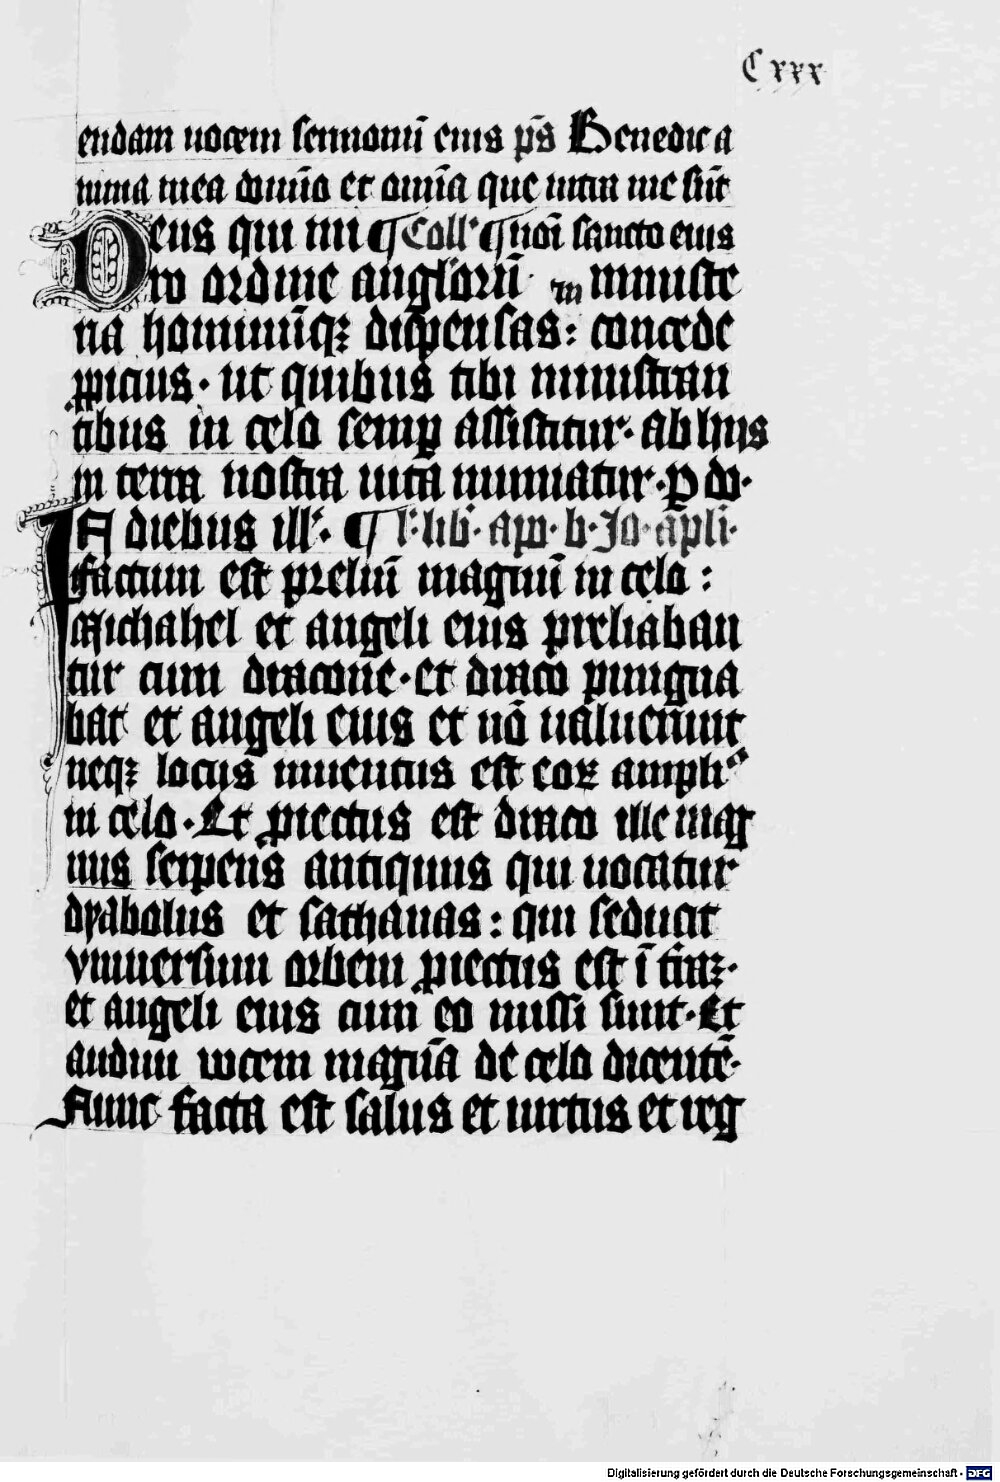 Cxxx
endam uocem sermonū eius p̄s Benedic a
nima mea domīo et omīa que intra me sūt
Deus qui mi ¶ Coll' ¶ noī sancto eius
ro ordine angl'orū m ministe
ria hominūqꝫ dispensas: concede
ꝓpicius · ut quibus tibi ministran
tibus in celo semꝑ assistitur · ab hiis
in terra nostra uita muniatur · ꝑ do ·
IN diebus ill' · ¶ l' · lib' · apo · b · Jo · apl̄i ·
Factum est preliū magnū in celo:
Michahel et angeli eius preliaban
tur cum dracone · et draco pungna
bat et angeli eius et nō ualuerūnt
neqꝫ locus inuentus est eoꝝ ampliꝰ
in celo · Et ꝓiectus est draco ille mag
nus serpens antiquus qui uocatur
dyabolus et sathanas: qui seducit
vniuersum orbem ꝓiectus est ī tīraꝫ ·
et angeli eius cum eo missi sunt · Et
audiui uocem magnā de celo dicentē ·
Nunc facta est salus et uirtus et reg
Digitalisierung gefördert durch die Deutsche Forschungsgemeinschaft - DFG